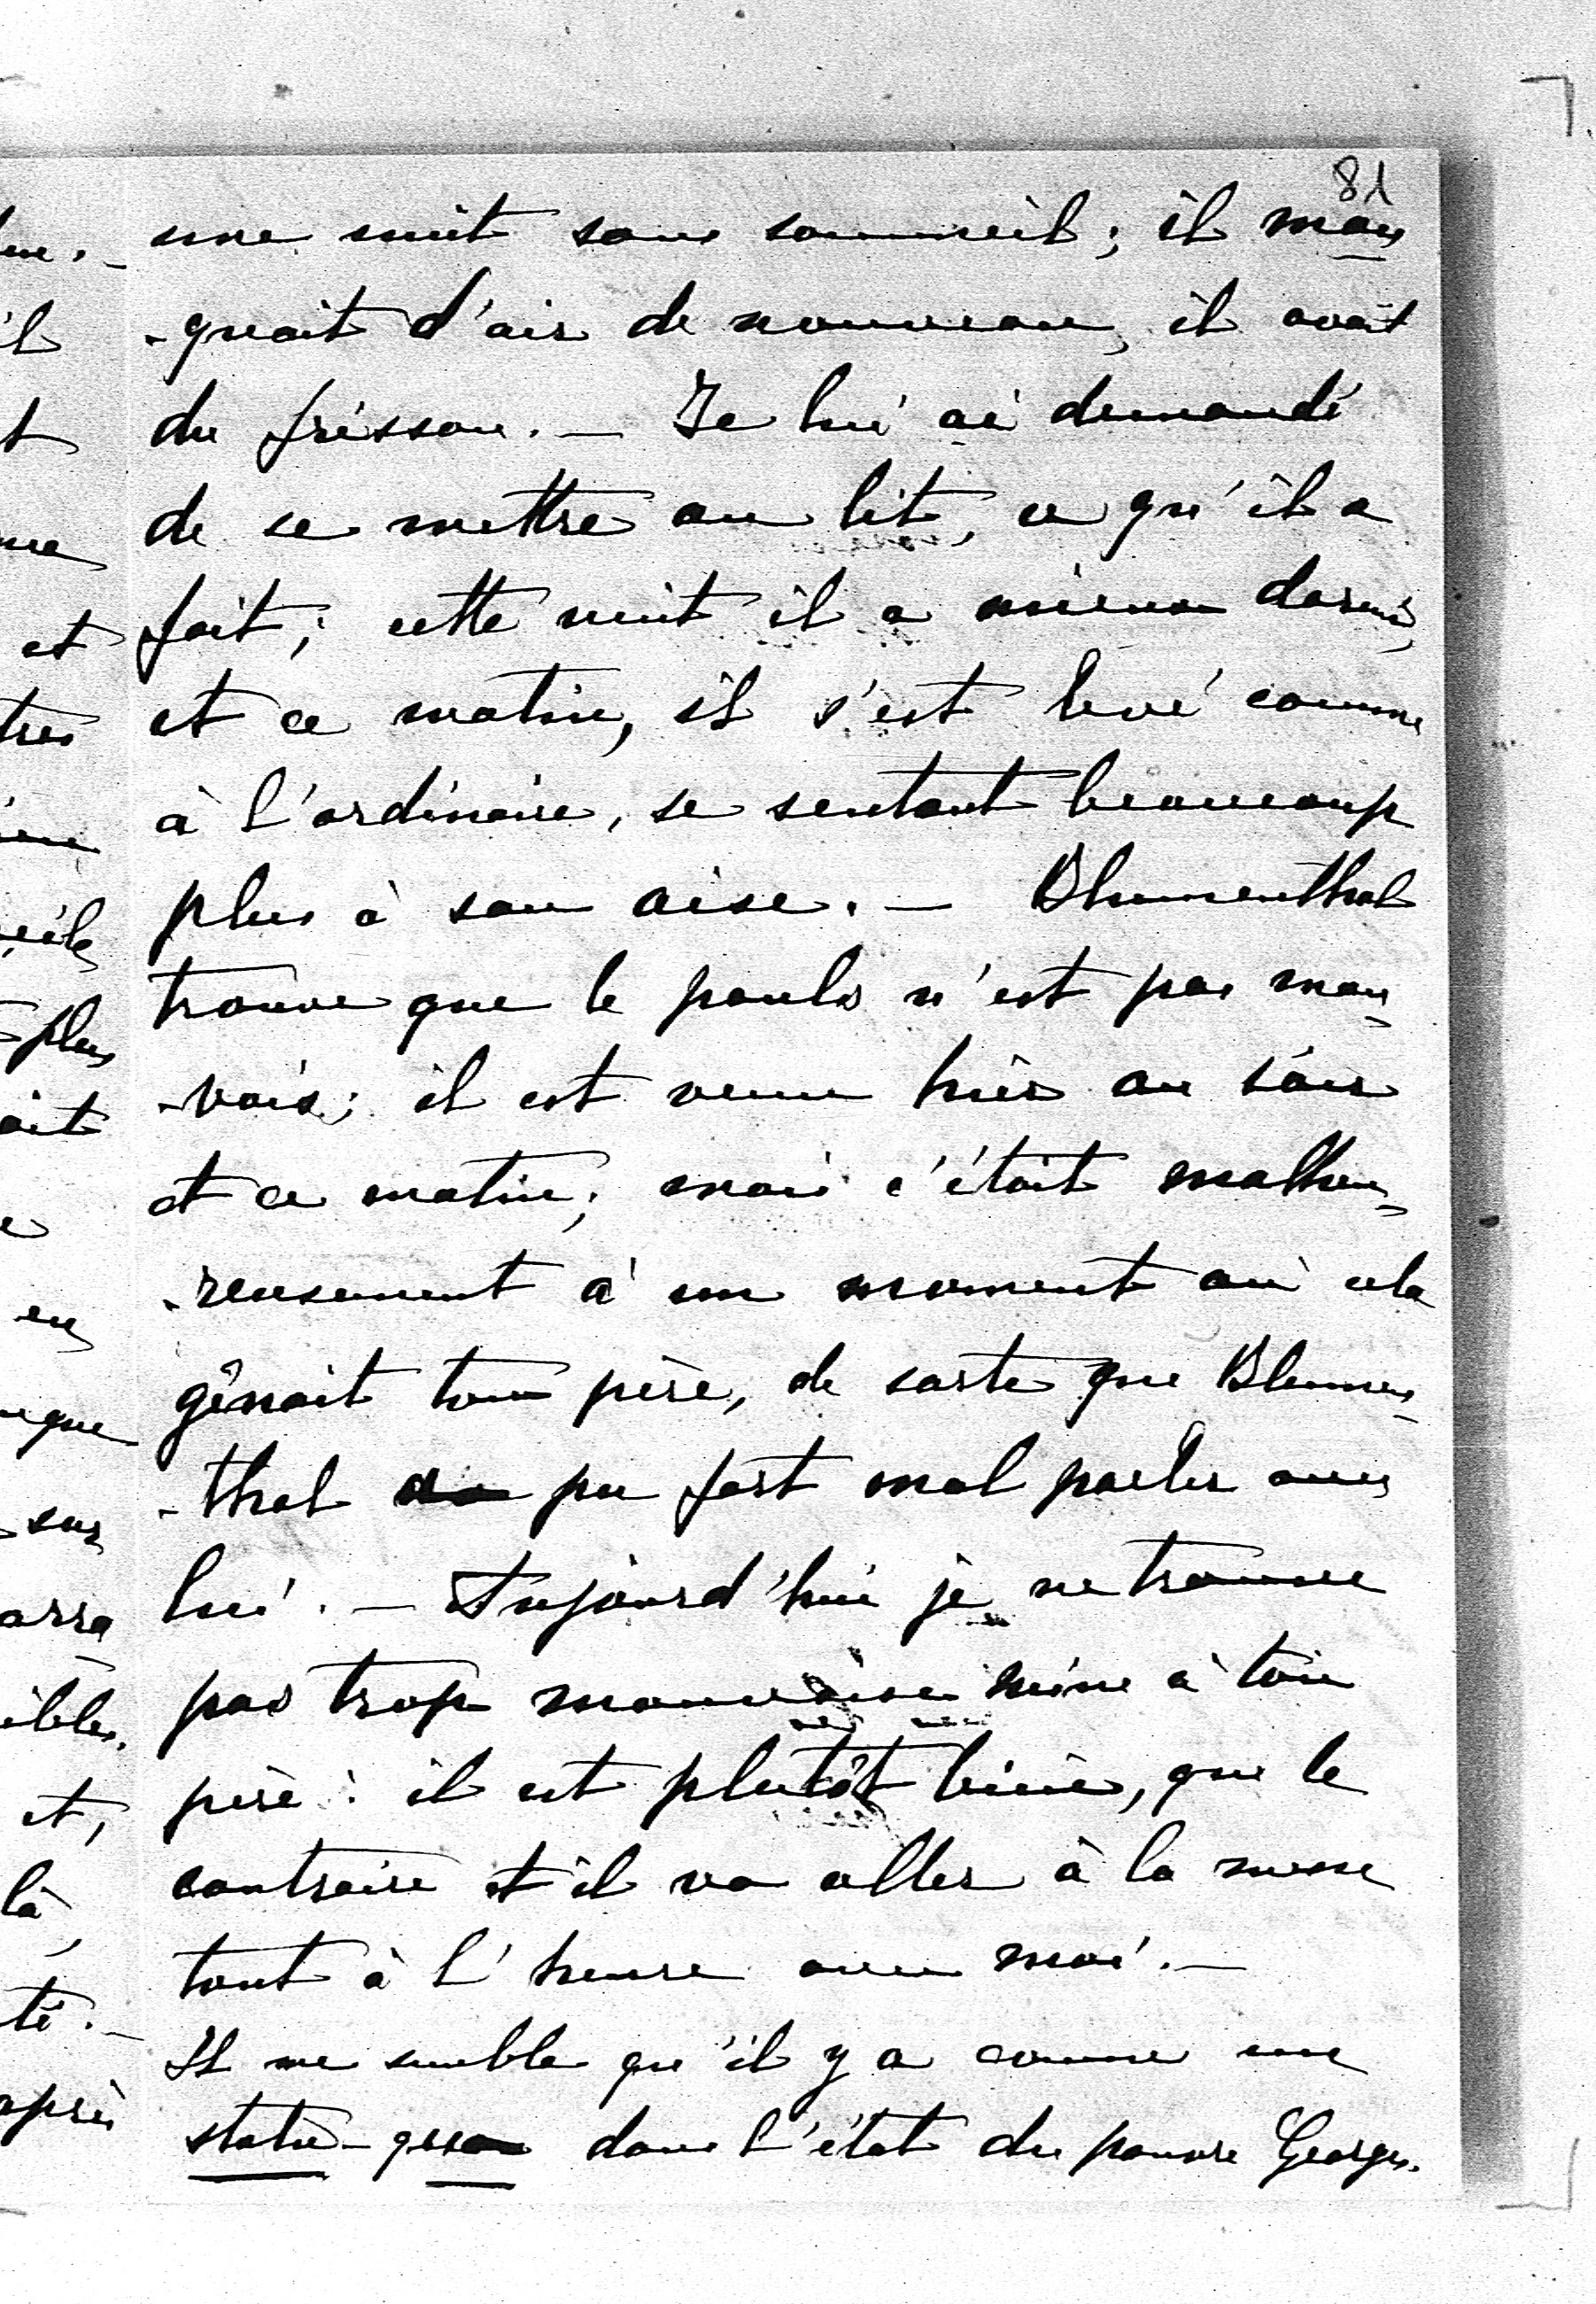 81
une nuit sans sommeil; il man
-quait d'air de nouveau, il avait
du frisson. — Je lui ai demandé
de se mettre au lit, ce qu'il a
fait; cette nuit il a mieux dormi,
et ce matin, il s'est levé comme
à l'ordinaire, se sentant beaucoup
plus à son aise. — Blumenthal
trouve que le pouls n'est pas mau-
-vais; il est venu hier au soir
et ce matin; mais c'était malheu-
-reusement à un moment où cela
gênait ton père, de sorte que Blumen-
-thal a pu fort mal parler avec
lui. — Aujourd'hui je ne trouve
pas trop mauvaise mine à ton
père: il est plutôt bien, que le
contraire et il va aller à la messe
tout à l'heure avec moi. —
Il me semble qu'il y a comme un
statu-quo dans l'état du pauvre Georges.